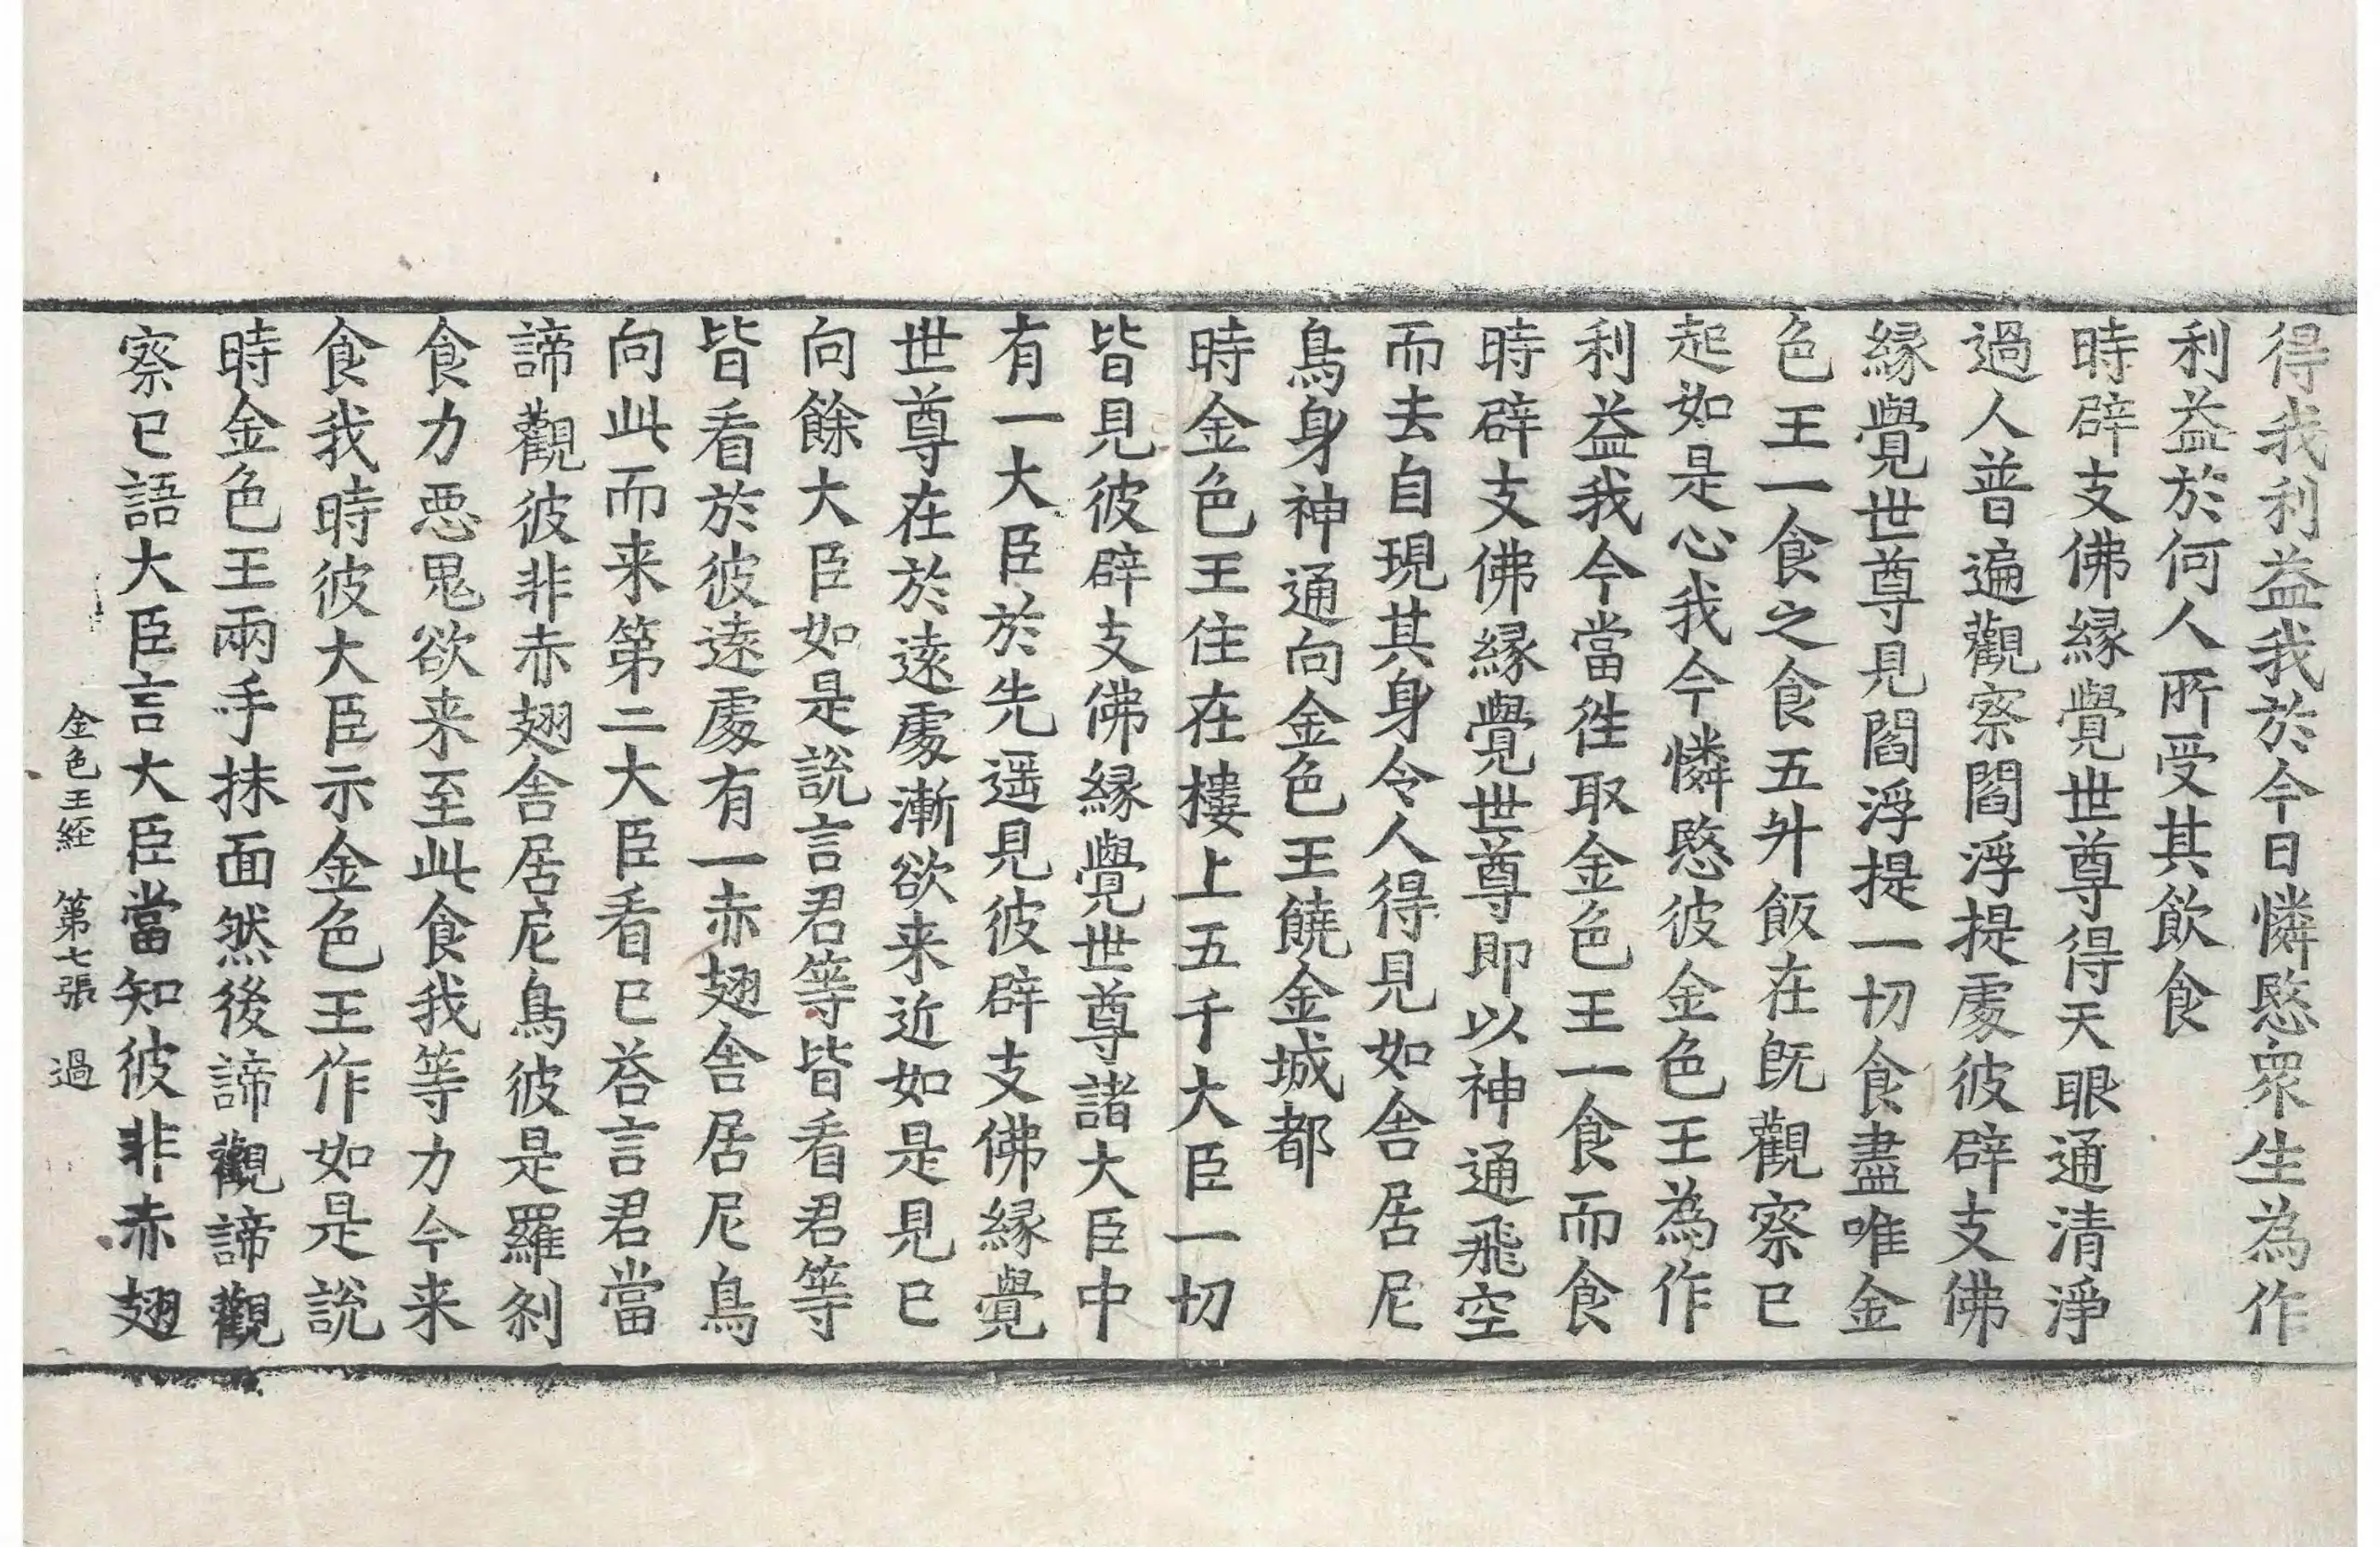 得我利益我於今日憐愍衆生為作
利益於何人所受其飲食
時辟支佛縁覺世尊得天眼通清淨
過人普遍觀察閻浮提處彼辟支佛
縁覺世尊見閻浮提一切食盡唯金
色王一食之食五升飯在既觀察已
起如是心我今憐愍彼金色王為作
利益我今當往取金色王一食而食
時辟支佛縁覺世尊即以神通飛空
而去自現其身令人得見如舍居尼
鳥身神通向金色王饒金城都
時金色王住在樓上五千大臣一切
皆見彼辟支佛縁覺世尊諸大臣中
有一大臣於先遥見彼辟支佛縁覺
世尊在於遠處漸欲来近如是見已
向餘大臣如是說言君等皆看君等
皆看於彼遠處有一赤翅舍居尼鳥
向此而来第二大臣看已荅言君當
諦觀彼非赤翅舍居尼鳥彼是羅刹
食力惡鬼欲来至此食我等力今来
食我時彼大臣示金色王作如是說
時金色王兩手抹面然後諦觀諦觀
察已語大臣言大臣當知彼非赤翅
金色王経 第七張 過